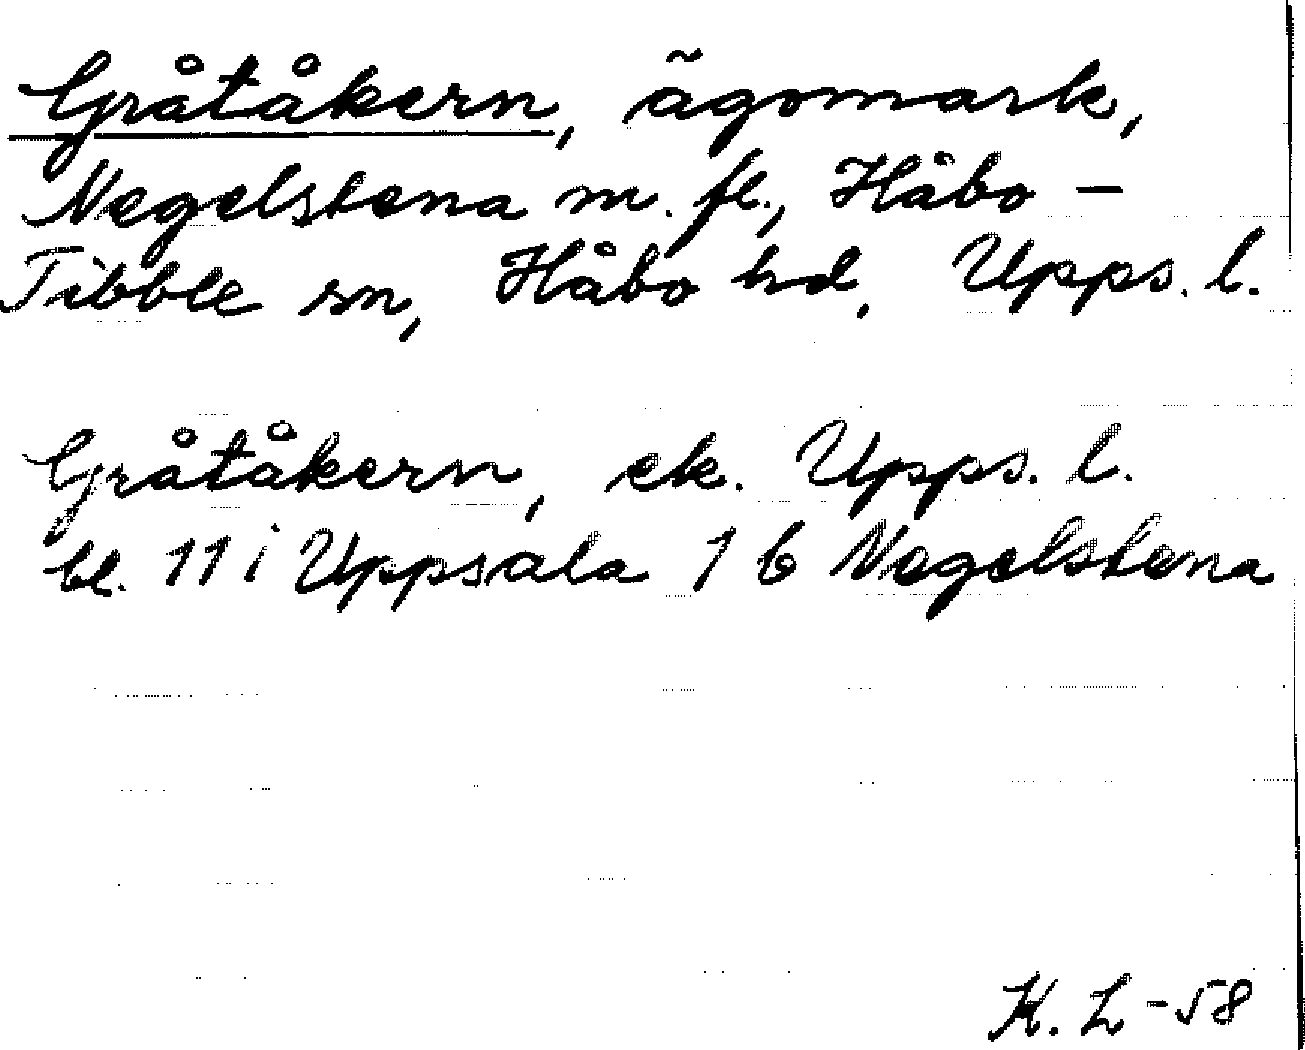 Gråtåkern, ägomark,
Negelstena m. fl., Håbo -
Tibble sn, Håbo hd, Upps. l.
Gråtåkern, ek. Upps. l.
bl. 11 i Uppsala 1 b Negelstena
K. L -58